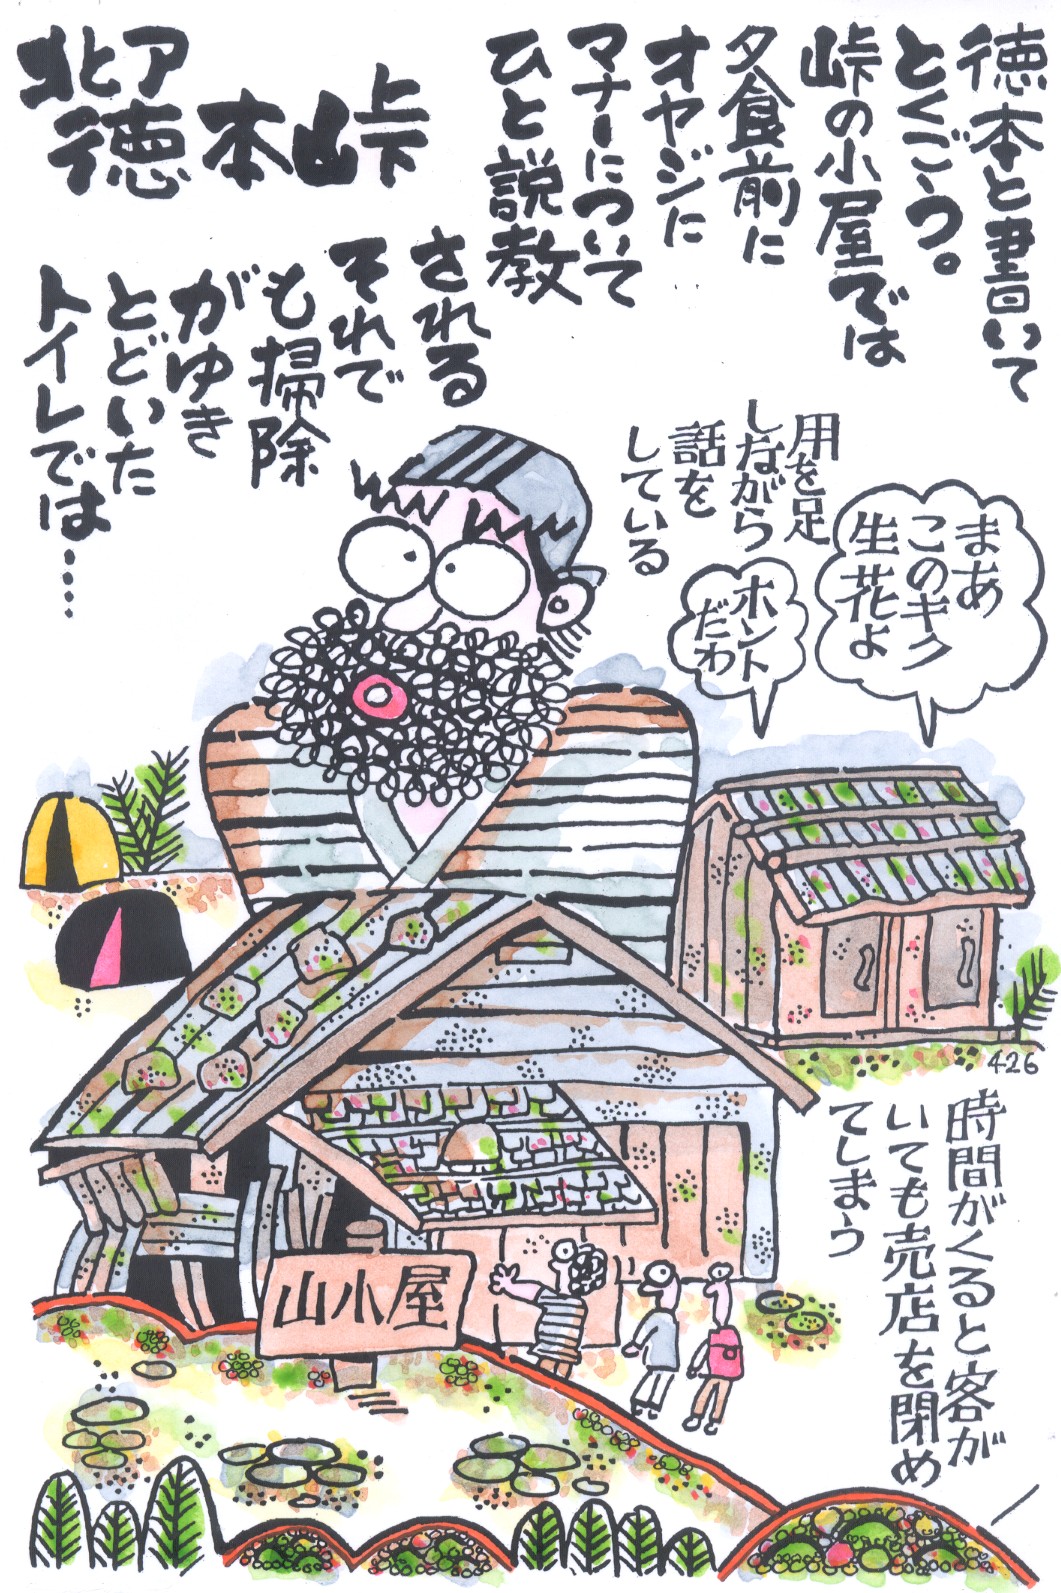 北ア
徳本峠
徳本と書いて
とくごう。
峠の小屋では
夕食前に
オヤジに
マナーについて
ひと説教
される
それで
も掃除
がゆき
とどいた
トイレでは…
用を足
しながら
話を
している
まあ
このキク
生花よ
ホント
だわ
426
時間がくると客が
いても売店を閉め
てしまう
山小屋